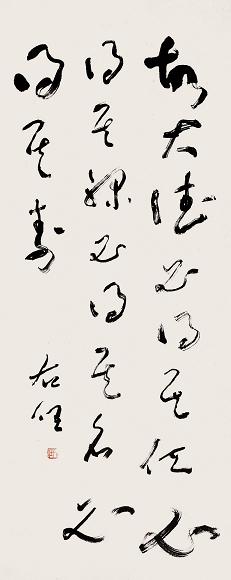 故大德必得其位必
得其祿必得其名必
得其壽
右任